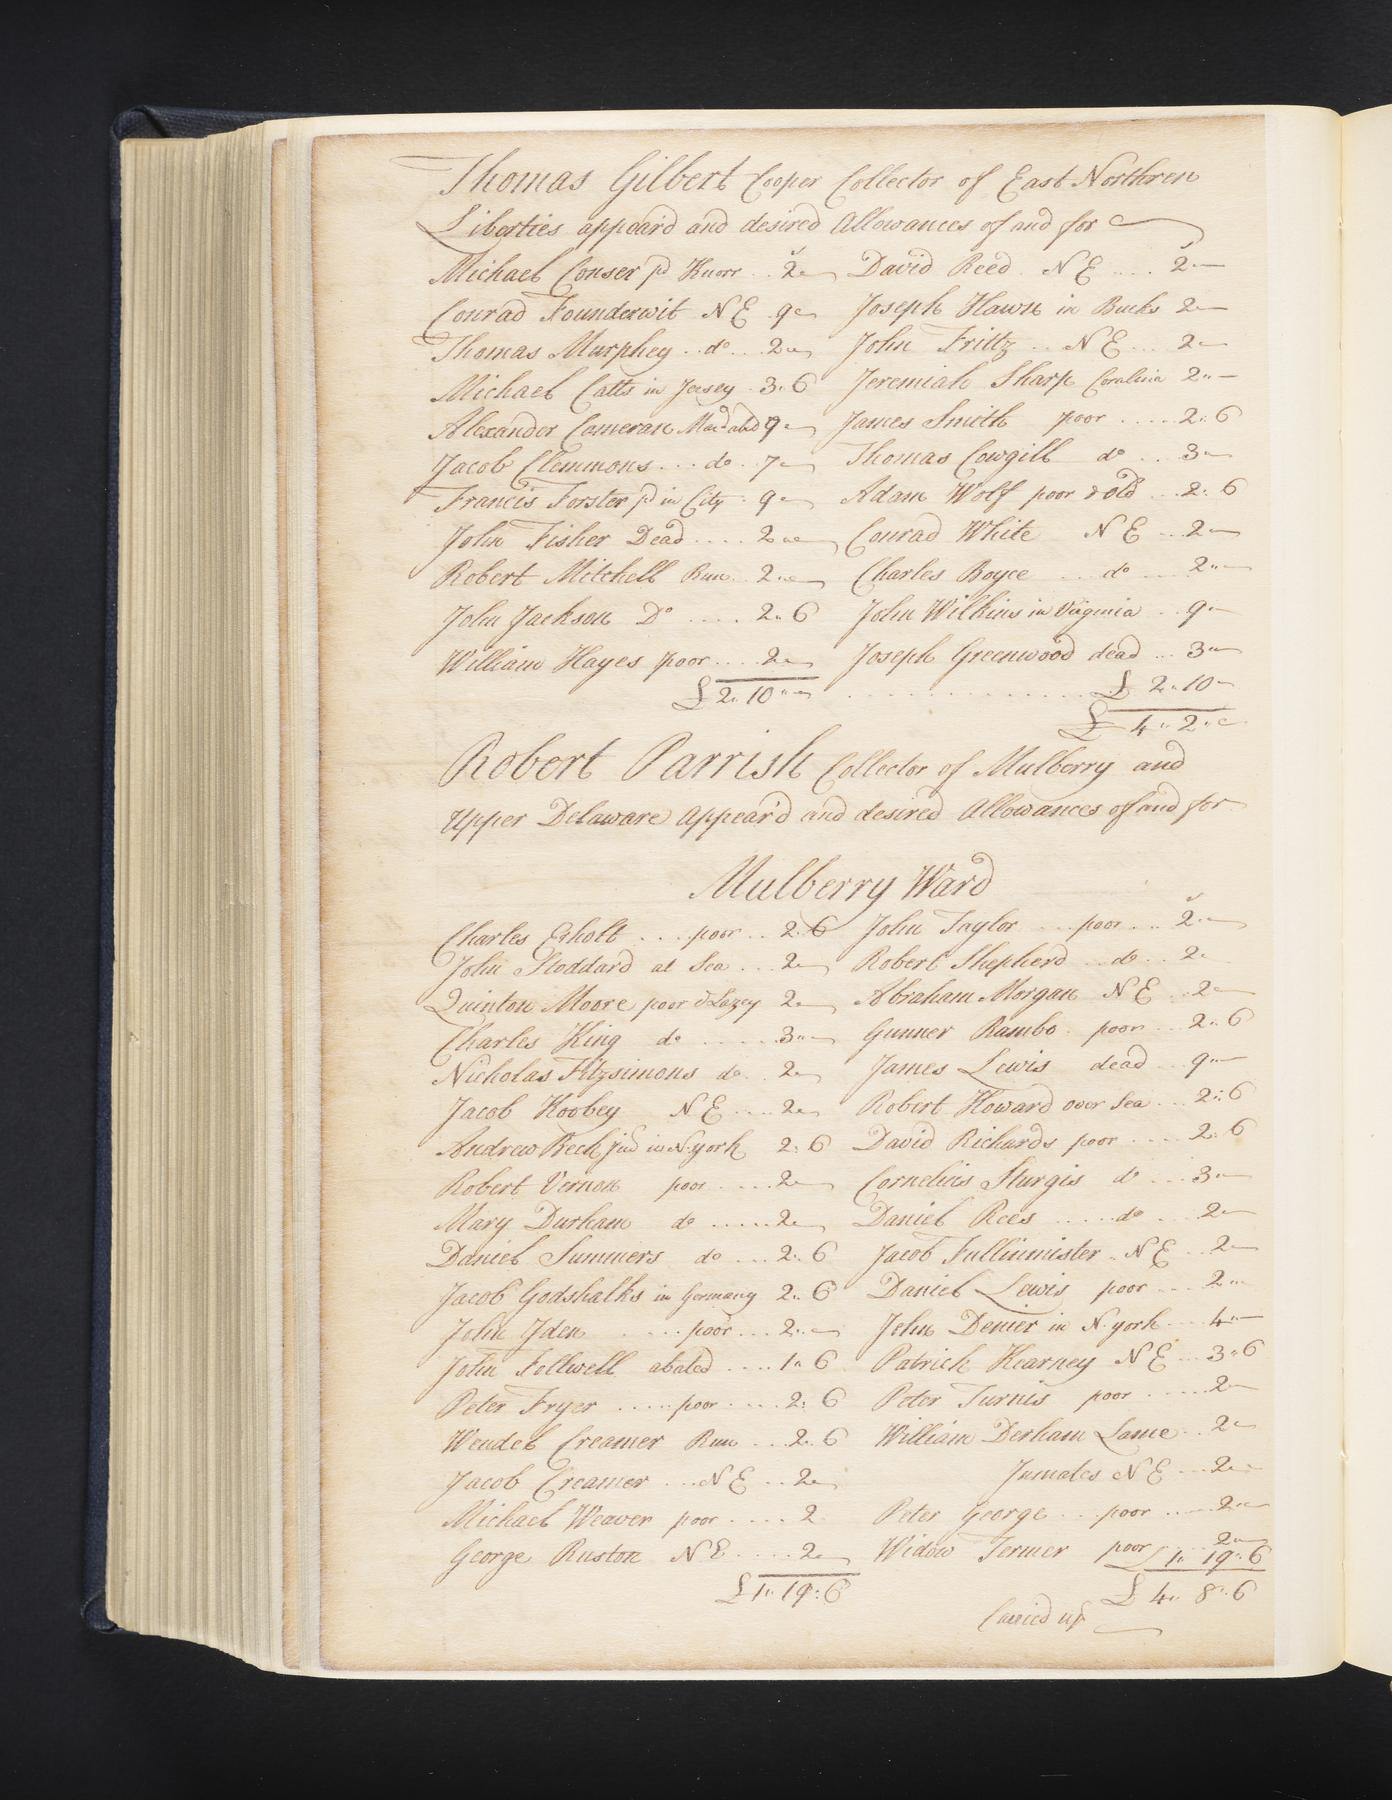 Thomas Gilbert Cooper Collector of East Northren
Liberties appear'd and desired Allowances of and for
Michael Conser pd Knorr .. 2"— David Reed . N E .... 2"—
Conrad Founderwit N E 9"— Joseph Hawn in Bucks 2"—
Thomas Murphey .. do ... 2"— John Frittz .. N E ... 2"—
Michael Catts in Jersey . 3"6 Jeremiah Sharp Coralina 2"—
Alexander Cameran 9"— James Smith poor ..... 2"6
Jacob Clemmons ... do . 7"— Thomas Cowgill do .. 3"—
Francis Forster pd in City : 9"— Adam Wolf poor & old ... 2"6
John Fisher Dead .... 2"— Conrad White N E ... 2"—
Robert Mitchell Run .. 2"— Charles Boyce ... do .... 2"—
John Jackson Do .... 2"6 John Wilkins in Virginia .. 9"—
William Hayes poor .... 2"— Joseph Greenwood dead ... 3"—
£2"10"— .............. £ 2"10"—
£ 4"2"—
Robert Parrish Collector of Mulberry and
Upper Delaware Appear'd and desired Allowances of and for
Mulberry Ward
Charles Erholt .... poor .. 2"6 John Taylor ... poor ... 2"—
John Stoddard at Sea ... 2"— Robert Shepherd .. do .. 2"—
Quinton Moore poor & Lazey 2"— Abraham Morgan N E .. 2"—
Charles King do ..... 3"— Gunner Rambo . poor ... 2"6
Nicholas Fitzsimons do . 2"— James Lewis dead .. 9"—
Jacob Koobey N E .... 2"— Robert Howard over Sea ... 2"6
Andrew Beck in N. york 2"6 David Richards poor .... 2"6
Robert Vernon poor .... 2"— Cornelius Sturgis do ... 3"—
Mary Durham do ..... 2"— Daniel Rees ..... do ... 2"—
Daniel Summers do ... 2"6 Jacob Fullinmister . N E .. 2"—
Jacob Godshalks in Germany 2"6 Daniel Lewis poor ... 2"—
John Iden .... poor ... 2"— John Denier in N. york ... 4"—
John Follwell abated .... 1"6 Patrick Kearney N E ... 3"6
Peter Fryer ..... poor .... 2"6 Peter Turnis poor ..... 2"—
Wendel Creamer Run ... 2"6 William Derham Lame .. 2"—
Jacob Creamer ... N E ... 2"— Inmates N E ... 2"—
Michael Weaver poor .... 2 Peter George ... poor ..... 2"—
George Ruston N E .... 2"— Widow Termer poor ... 2"—
£1"19"6 £1"19"6
£ 4"8"6
Carried up